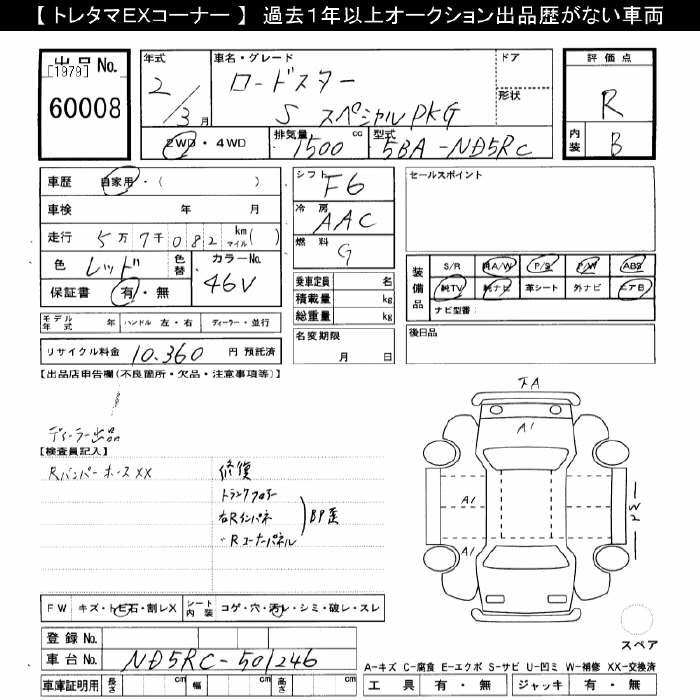 【 トレタマEXコーナー 】 過去1年以上オークション出品歴がない車両
出品 No.
[1979]
60008
年式
2/3月
車名・グレード
ロードスター
S スペシャルPKG
ドア
形状
2WD・4WD
排気量 1500 cc
型式 5BA-ND5RC
評価点
R
内装
B
車歴 自家用・( )
車検 年 月
走行 5万7千082 km マイル( )
色 レッド
色替
カラーNo.
46V
保証書 有・無
シフト F6
冷房 AAC
燃料 G
乗車定員 名
積載量 kg
総重量 kg
名変期限
月 日
セールスポイント
装備品
S/R 純A/W P/S P/W ABS
純TV 純ナビ 革シート 外ナビ エアB
ナビ型番:
後日品
モデル年式 年 ハンドル 左・右 ディーラー・並行
リサイクル料金 10,360 円 預託済
【出品店申告欄(不良箇所・欠品・注意事項等)】
ディーラー出品
【検査員記入】
RバンパーホースXX
修復
トランクフロアー
右Rインパネ
〃Rコーナーパネル
BP歪
FA
A1
A1
A1
2W
スペア
FW キズ・トビ石・割レX
シート内装 コゲ・穴・汚レ・シミ・破レ・スレ
登録 No.
車台 No. ND5RC-501246
車庫証明用 長さ cm 幅 cm 高さ cm
A-キズ C-腐食 E-エクボ S-サビ U-凹ミ W-補修 XX-交換済
工具 有・無 ジャッキ 有・無